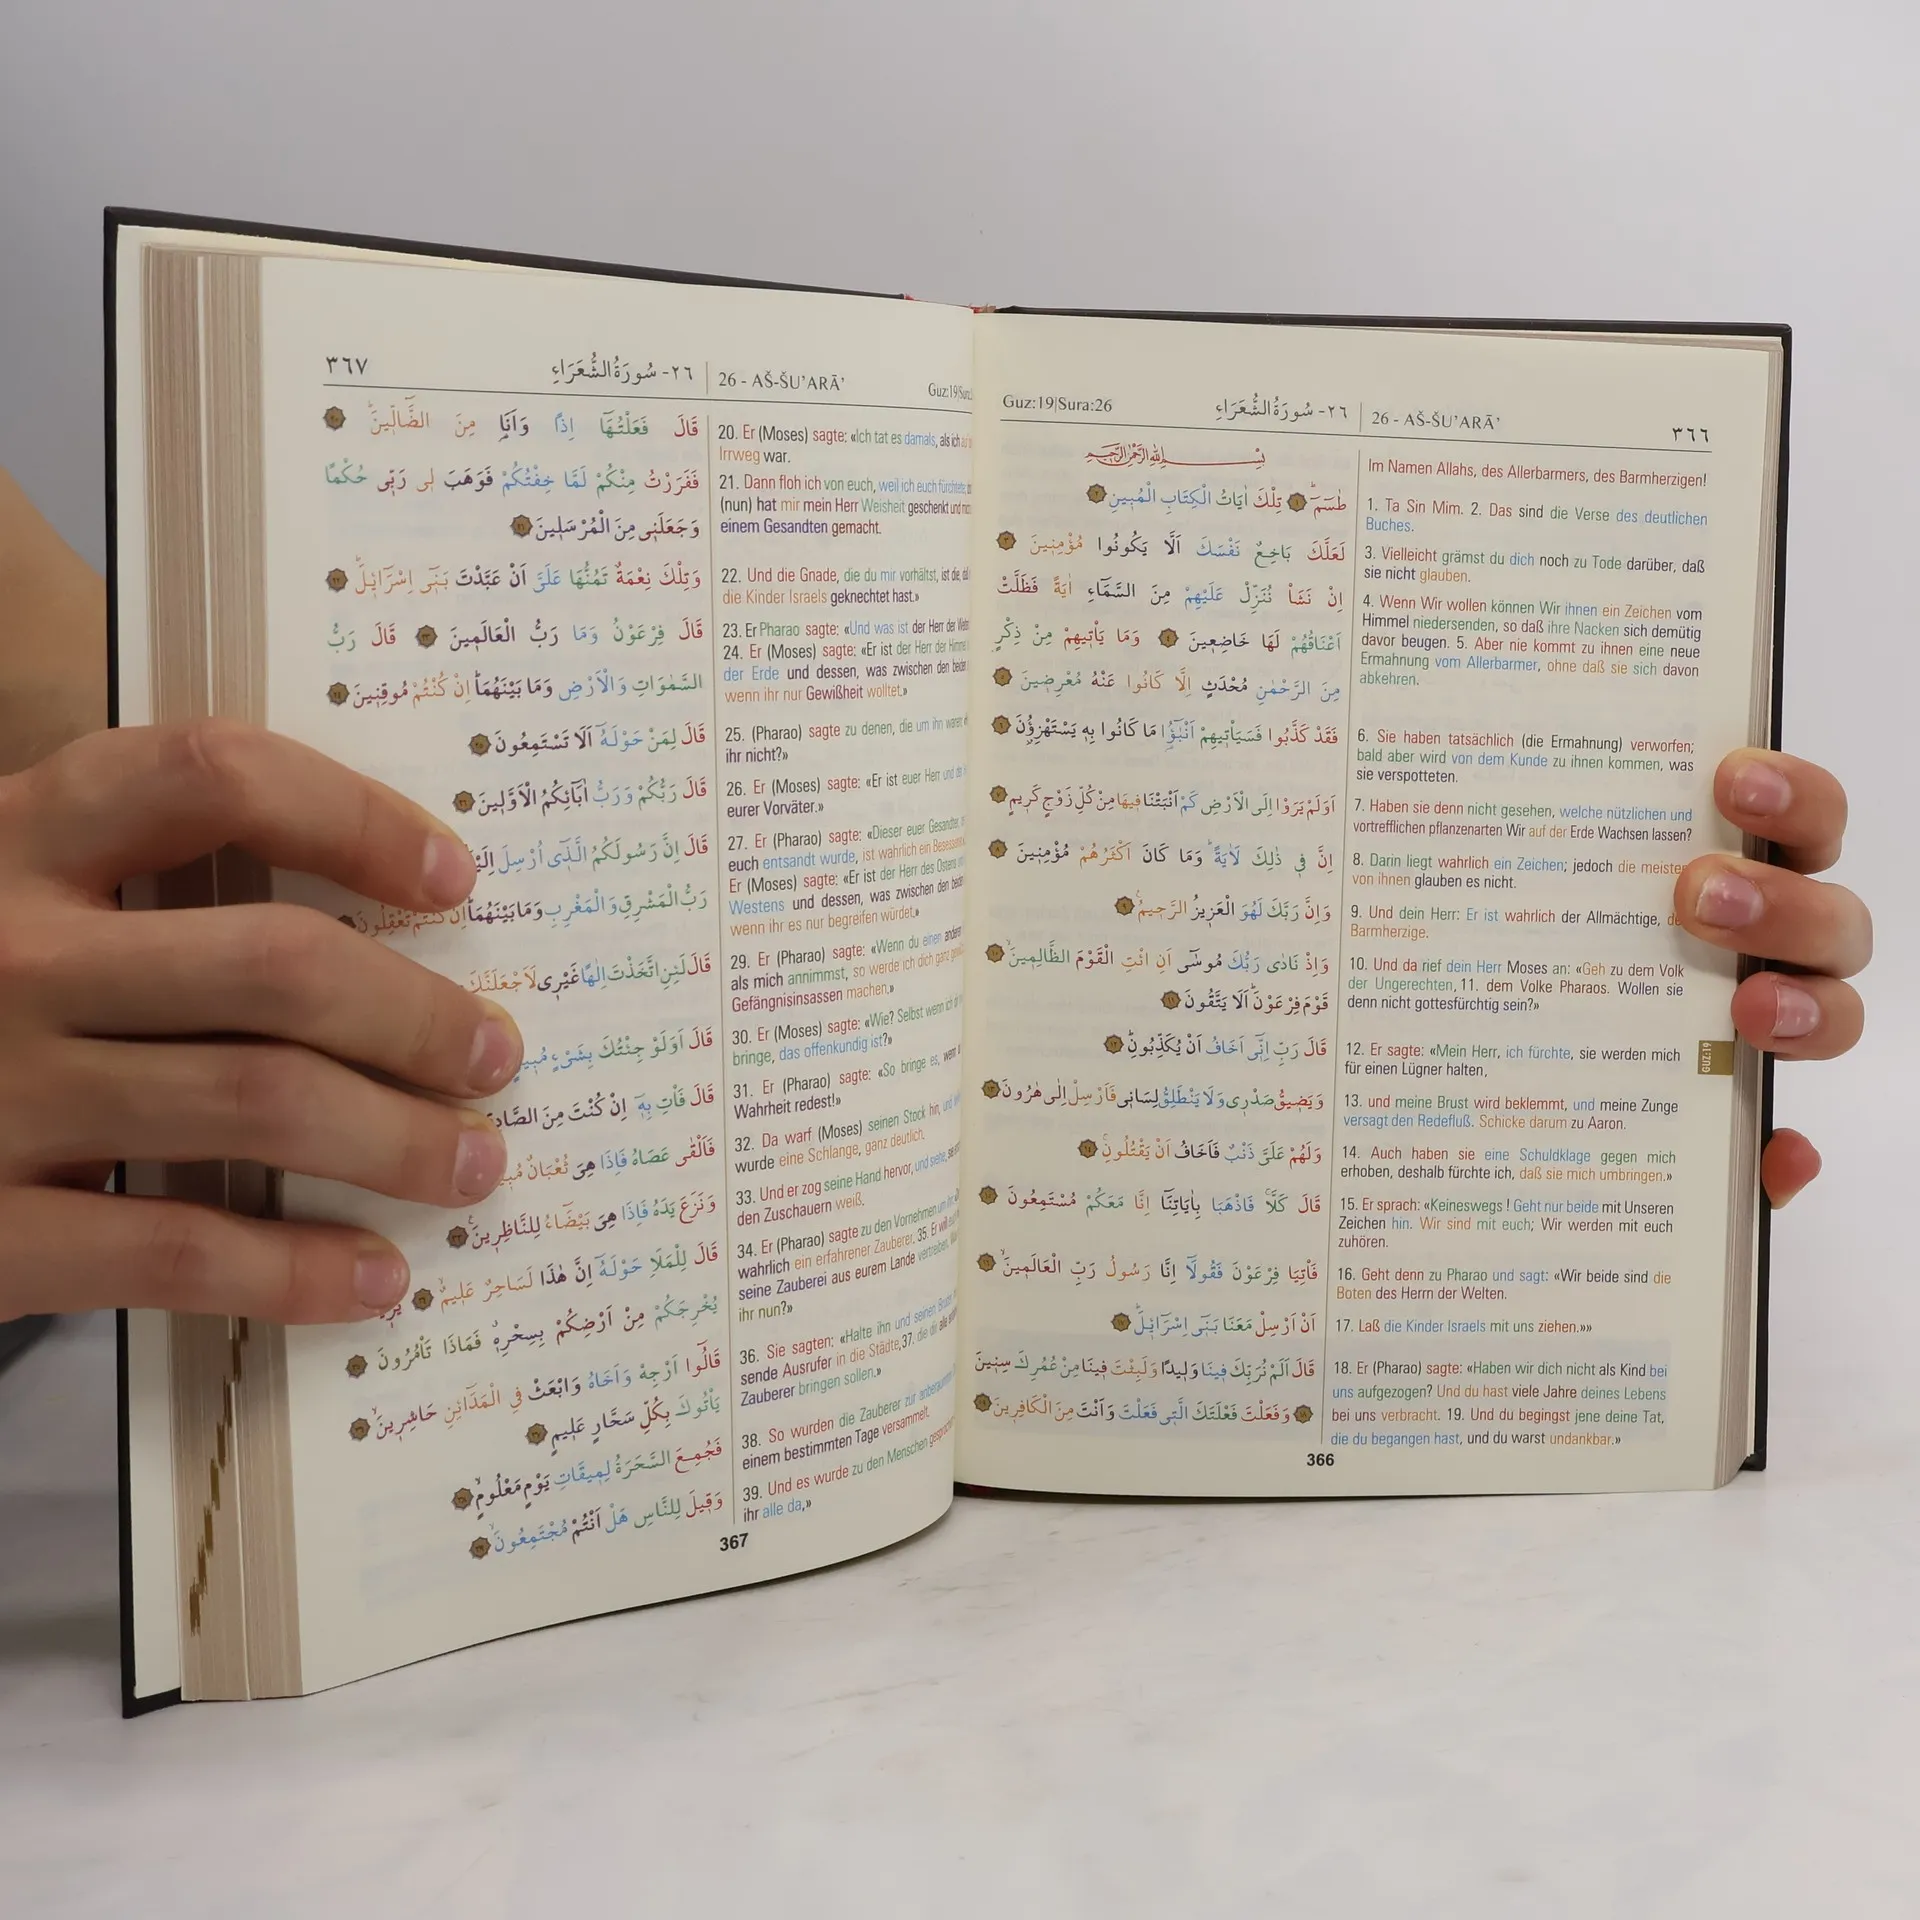 Guz:19|Sura:26
٢٦- سُورَةُ الشُّعَرَاءِ
26 - AŠ-ŠU’ARĀ’
٣٦٦
بِسْمِ اللهِ الرَّحْمٰنِ الرَّحِيمِ
طٰسٓمٓ ۚ ١ تِلْكَ اٰيَاتُ الْكِتَابِ الْمُبِينِ ٢
لَعَلَّكَ بَاخِعٌ نَفْسَكَ اَلَّا يَكُونُوا مُؤْمِنِينَ ٣
اِنْ نَشَأْ نُنَزِّلْ عَلَيْهِمْ مِنَ السَّمَٓاءِ اٰيَةً فَظَلَّتْ
اَعْنَاقُهُمْ لَهَا خَاضِعِينَ ٤ وَمَا يَأْتِيهِمْ مِنْ ذِكْرٍ
مِنَ الرَّحْمٰنِ مُحْدَثٍ اِلَّا كَانُوا عَنْهُ مُعْرِضِينَ ٥
فَقَدْ كَذَّبُوا فَسَيَأْتِيهِمْ اَنْبٰٓؤُا مَا كَانُوا بِهِ يَسْتَهْزِؤُنَ ٦
اَوَلَمْ يَرَوْا اِلَى الْاَرْضِ كَمْ اَنْبَتْنَا فِيهَا مِنْ كُلِّ زَوْجٍ كَرِيمٍ ٧
اِنَّ فِي ذٰلِكَ لَاٰيَةً ۜ وَمَا كَانَ اَكْثَرُهُمْ مُؤْمِنِينَ ٨
وَاِنَّ رَبَّكَ لَهُوَ الْعَزِيزُ الرَّحِيمُ ۟ ٩
وَاِذْ نَادٰى رَبُّكَ مُوسٰٓى اَنِ ائْتِ الْقَوْمَ الظَّالِمِينَ ۙ ١٠
قَوْمَ فِرْعَوْنَ ۜ اَلَا يَتَّقُونَ ١١
قَالَ رَبِّ اِنِّٓي اَخَافُ اَنْ يُكَذِّبُونِ ۜ ١٢
وَيَضِيقُ صَدْرِي وَلَا يَنْطَلِقُ لِسَانِي فَاَرْسِلْ اِلٰى هٰرُونَ ١٣
وَلَهُمْ عَلَيَّ ذَنْبٌ فَاَخَافُ اَنْ يَقْتُلُونِ ۚ ١٤
قَالَ كَلَّا ۚ فَاذْهَبَا بِاٰيَاتِنَٓا اِنَّا مَعَكُمْ مُسْتَمِعُونَ ١٥
فَأْتِيَا فِرْعَوْنَ فَقُولَٓا اِنَّا رَسُولُ رَبِّ الْعَالَمِينَ ۙ ١٦
اَنْ اَرْسِلْ مَعَنَا بَنِٓي اِسْرَٓائِلَ ۜ ١٧
قَالَ اَلَمْ نُرَبِّكَ فِينَا وَلِيدًا وَلَبِثْتَ فِينَا مِنْ عُمُرِكَ سِنِينَ
١٨ وَفَعَلْتَ فَعْلَتَكَ الَّتِي فَعَلْتَ وَاَنْتَ مِنَ الْكَافِرِينَ ١٩
Im Namen Allahs, des Allerbarmers, des Barmherzigen!
1. Ta Sin Mim. 2. Das sind die Verse des deutlichen
Buches.
3. Vielleicht grämst du dich noch zu Tode darüber, daß
sie nicht glauben.
4. Wenn Wir wollen können Wir ihnen ein Zeichen vom
Himmel niedersenden, so daß ihre Nacken sich demütig
davor beugen. 5. Aber nie kommt zu ihnen eine neue
Ermahnung vom Allerbarmer, ohne daß sie sich davon
abkehren.
6. Sie haben tatsächlich (die Ermahnung) verworfen;
bald aber wird von dem Kunde zu ihnen kommen, was
sie verspotteten.
7. Haben sie denn nicht gesehen, welche nützlichen und
vortrefflichen pflanzenarten Wir auf der Erde Wachsen lassen?
8. Darin liegt wahrlich ein Zeichen; jedoch die meisten
von ihnen glauben es nicht.
9. Und dein Herr: Er ist wahrlich der Allmächtige,
Barmherzige.
10. Und da rief dein Herr Moses an: «Geh zu dem Volk
der Ungerechten, 11. dem Volke Pharaos. Wollen sie
denn nicht gottesfürchtig sein?»
12. Er sagte: «Mein Herr, ich fürchte, sie werden mich
für einen Lügner halten,
13. und meine Brust wird beklemmt, und meine Zunge
versagt den Redefluß. Schicke darum zu Aaron.
14. Auch haben sie eine Schuldklage gegen mich
erhoben, deshalb fürchte ich, daß sie mich umbringen.»
15. Er sprach: «Keineswegs ! Geht nur beide mit Unseren
Zeichen hin. Wir sind mit euch; Wir werden mit euch
zuhören.
16. Geht denn zu Pharao und sagt: «Wir beide sind die
Boten des Herrn der Welten.
17. Laß die Kinder Israels mit uns ziehen.»»
18. Er (Pharao) sagte: «Haben wir dich nicht als Kind bei
uns aufgezogen? Und du hast viele Jahre deines Lebens
bei uns verbracht. 19. Und du begingst jene deine Tat,
die du begangen hast, und du warst undankbar.»
GUZ:19
366
٣٦٧
٢٦- سُورَةُ الشُّعَرَاءِ
26 - AŠ-ŠU’ARĀ’
Guz:19|Sura:
قَالَ فَعَلْتُهَٓا اِذًا وَاَنَا۬ مِنَ الضَّٓالِّينَ ۜ ٢٠
فَفَرَرْتُ مِنْكُمْ لَمَّا خِفْتُكُمْ فَوَهَبَ لِي رَبِّي حُكْمًا
وَجَعَلَنِي مِنَ الْمُرْسَلِينَ ٢١
وَتِلْكَ نِعْمَةٌ تَمُنُّهَا عَلَيَّ اَنْ عَبَّدْتَ بَنِٓي اِسْرَٓائِلَ ۜ ٢٢
قَالَ فِرْعَوْنُ وَمَا رَبُّ الْعَالَمِينَ ٢٣ قَالَ رَبُّ
السَّمٰوَاتِ وَالْاَرْضِ وَمَا بَيْنَهُمَا ۜ اِنْ كُنْتُمْ مُوقِنِينَ ٢٤
قَالَ لِمَنْ حَوْلَهُٓ اَلَا تَسْتَمِعُونَ ٢٥
قَالَ رَبُّكُمْ وَرَبُّ اٰبَٓائِكُمُ الْاَوَّلِينَ ٢٦
قَالَ اِنَّ رَسُولَكُمُ الَّذِٓي اُرْسِلَ
رَبُّ الْمَشْرِقِ وَالْمَغْرِبِ وَمَا بَيْنَهُمَا ۜ اِنْ كُنْتُمْ تَعْقِلُونَ
قَالَ لَئِنِ اتَّخَذْتَ اِلٰهًا غَيْرِي لَاَجْعَلَنَّكَ
قَالَ اَوَلَوْ جِئْتُكَ بِشَيْءٍ
قَالَ فَأْتِ بِهِٓ اِنْ كُنْتَ مِنَ
فَاَلْقٰى عَصَاهُ فَاِذَا هِيَ ثُعْبَانٌ
وَنَزَعَ يَدَهُ فَاِذَا هِيَ بَيْضَٓاءُ لِلنَّاظِرِينَ ۟ ٣٣
قَالَ لِلْمَلَاِ حَوْلَهُٓ اِنَّ هٰذَا لَسَاحِرٌ عَلِيمٌ ۙ ٣٤
يُخْرِجَكُمْ مِنْ اَرْضِكُمْ بِسِحْرِهِ ۗ فَمَاذَا تَأْمُرُونَ ٣٥
قَالُٓوا اَرْجِهْ وَاَخَاهُ وَابْعَثْ فِي الْمَدَٓائِنِ حَاشِرِينَ ۙ ٣٦
يَأْتُوكَ بِكُلِّ سَحَّارٍ عَلِيمٍ ٣٧
فَجُمِعَ السَّحَرَةُ لِمِيقَاتِ يَوْمٍ مَعْلُومٍ ۙ ٣٨
وَقِيلَ لِلنَّاسِ هَلْ اَنْتُمْ مُجْتَمِعُونَ ۙ ٣٩
20. Er (Moses) sagte: «Ich tat es damals, als ich
Irrweg war.
21. Dann floh ich von euch, weil ich euch fürchtete;
(nun) hat mir mein Herr Weisheit geschenkt und
einem Gesandten gemacht.
22. Und die Gnade, die du mir vorhältst, ist die,
die Kinder Israels geknechtet hast.»
23. Er Pharao sagte: «Und was ist der Herr der
24. Er (Moses) sagte: «Er ist der Herr der Himmel
der Erde und dessen, was zwischen den beiden
wenn ihr nur Gewißheit wolltet.»
25. (Pharao) sagte zu denen, die um ihn waren:
ihr nicht?»
26. Er (Moses) sagte: «Er ist euer Herr und
eurer Vorväter.»
27. Er (Pharao) sagte: «Dieser euer Gesandter,
euch entsandt wurde, ist wahrlich ein
Er (Moses) sagte: «Er ist der Herr des Ostens
Westens und dessen, was zwischen den
wenn ihr es nur begreifen würdet.»
29. Er (Pharao) sagte: «Wenn du einen anderen
als mich annimmst, so werde ich dich ganz
Gefängnisinsassen machen.»
30. Er (Moses) sagte: «Wie? Selbst wenn ich
bringe, das offenkundig ist?»
31. Er (Pharao) sagte: «So bringe es, wenn
Wahrheit redest!»
32. Da warf (Moses) seinen Stock hin, und
wurde eine Schlange, ganz deutlich.
33. Und er zog seine Hand hervor, und siehe,
den Zuschauern weiß.
34. Er (Pharao) sagte zu den Vornehmen um ihn:
wahrlich ein erfahrener Zauberer. 35. Er will
seine Zauberei aus eurem Lande vertreiben.
ihr nun?»
36. Sie sagten: «Halte ihn und seinen Bruder
sende Ausrufer in die Städte, 37. die dir alle
Zauberer bringen sollen.»
38. So wurden die Zauberer zur anberaumten
einem bestimmten Tage versammelt.
39. Und es wurde zu den Menschen gesprochen:
ihr alle da,»
367